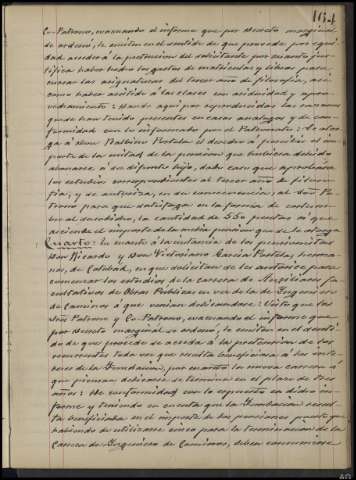 164
Co-Patrono, evacuando el informe que por Decreto marginal
se ordenó, lo emiten en el sentido de que procede por equi
dad acceder á la pretensión del solicitante por cuanto jus-
tifica haber hecho los gastos de matrículas y libros para
cursar las asignaturas del tercer año de filosofía, así
como haber asistido á las clases con asiduidad y apro-
vechamiento: Dando aquí por reproducidas las razones
que se han tenido presentes en casos análogos y de con-
formidad con lo informado por el Patronato: Se otor-
ga á Don Balbino Portela el derecho á percibir el im-
porte de la mitad de la pensión que hubiera debido
abonarse á su difunto hijo, dado caso que aprobara
los estudios correspondientes al tercer año de filoso-
fía; y se autoriza, en su consecuencia, al Señor Pa-
trono para que satisfaga en la forma de costum-
bre al susodicho, la cantidad de 550 pesetas á que
asciende el importe de la media pensión que se le otorga
Cuarto: En cuanto á la instancia de los pensionistas
Don Ricardo y Don Victoriano García Portela, herma-
nos, de Calidad, en que solicitan se les autorice para
comenzar los estudios de la Carrera de Auxiliares fa-
cultativos de Obras Públicas en vez de la de Ingenieros
de Caminos á que venían dedicándose: Visto que los
Sres Patrono y Co-Patrono, evacuando el informe que
por Decreto marginal se ordenó, lo emiten en el senti-
do de que procede se acceda á la pretensión de los
recurrentes toda vez que resulta beneficiosa á los inte-
reses de la Fundación, por cuanto la nueva carrera á
que piensan dedicarse se termina en el plazo de tres
años: De conformidad con lo expuesto en dicho in-
forme y teniendo en cuenta que la Fundación resul-
ta beneficiada en el importe de las pensiones puesto que
habiendo de utilizarse cinco para la terminación de la
Carrera de Ingenieros de Caminos, deben economizarse